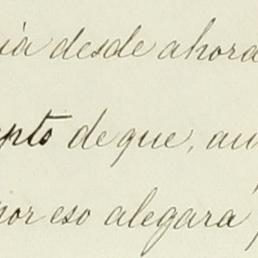 ia desde ahora
epto de que, au
por eso alegara